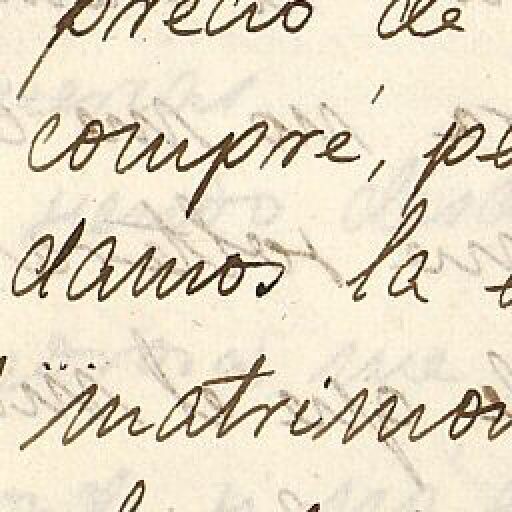 precio de
compré, pe
damos la e
matrimon